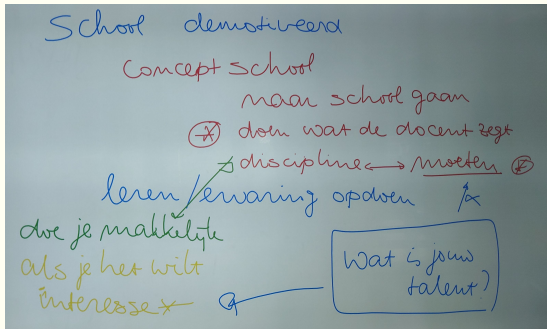 School demotiveerd
Concept school
naar school gaan
doen wat de docent zegt
discipline ↔ moeten
leren / ervaring opdoen
doe je makkelijk
als je het wilt
interesse
Wat is jouw
talent?